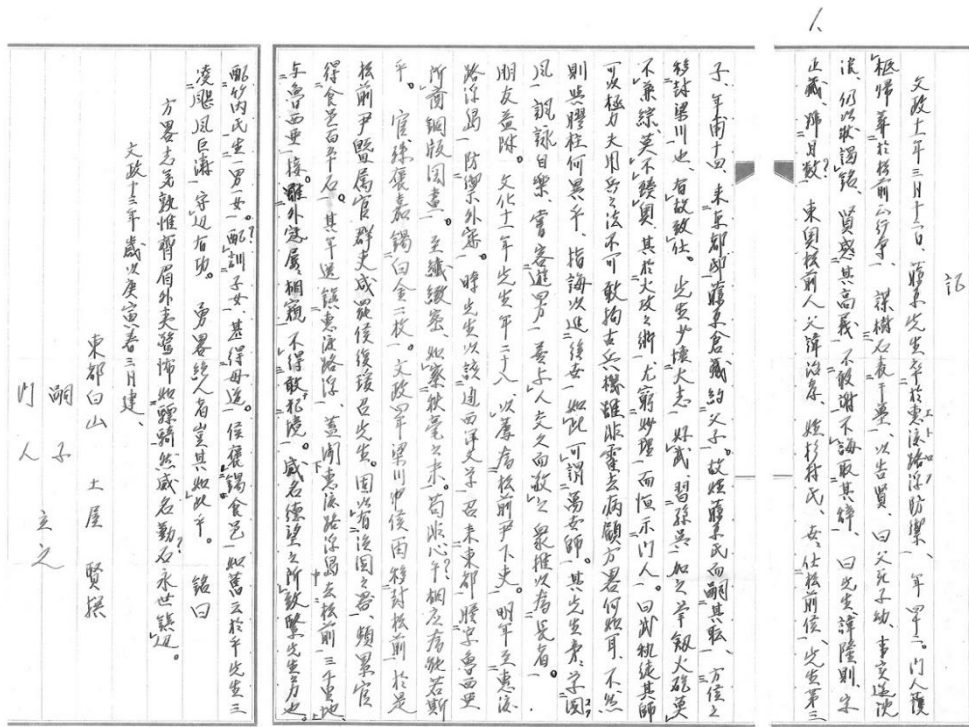 人
記
文政十一年三月十二日、藤原先生卒於惠渡路浮防禦、年四十一。門人護
柩帰葬於松前山行寺、謀樹石表于墓、以告賢、曰父死子幼、
仍以状謁銘、賢感其高義、不敢謝不誨取其状、曰先生、諱隆則、字
正蔵、姉月敬?東奥松前人父諱治孝、妣杉村氏、世仕松前侯、先生第三
子、年甫十四、来東都邸藤原倉蔵約父子、故姓藤原氏而嗣其職、方侯之
移封梁川也、有故致仕。先生少懐大志好武、習孫呉加之弓剣火砲莫
不兼綜、莫不賾奥、其於火攻之術尤窮妙理、而恒示門人。曰武執徒其師
可以極力夫用兵之法不可敢拘古兵機雖非霍去病顧方畧何如耳、不然
則与膠柱何異乎、指誨以進後世如此可謂萬世師。其先生者、学国
風諷詠自樂、嘗客遊男善与人交久而敬之衆推次為兄者。
朋友益陳。文化十一年先生年二十八以薦為松前尹下吏。明年至惠渡
路浮島防禦外寇。時先生以該通西洋文字召来東都謄写魯西亜
所齎銅版図書。至繊緻密、如察秋毫之末。苟非心乎相応者能若斯
乎。官殊褒嘉錫白金二枚。文政四年梁川中侯再移封松前於是
松前尹曁属官群吏咸罷侯復召先生。因以有後図之器、頻累官
得食邑百五十石。其年還鎮惠渡路浮、蓋聞惠渡路浮島去松前三千里地
与魯西亜接。雖外寇屡相窺不得敢犯境。威名徳望之所致繄先生力也。
配竹内氏生一男一女。配?訓子女、甚得母道。侯褒錫食邑如舊云於乎先生三
凌颶風巨濤守辺有功。勇畧絶人者豈其如此乎。銘曰
方畧志気孰惟齊眉外夷聾怖如驃騎然威名勒石?永世鎮辺。
文政十三年歳次庚寅春三月建
東都白山 土屋 賢撰
嗣子
門人 立之